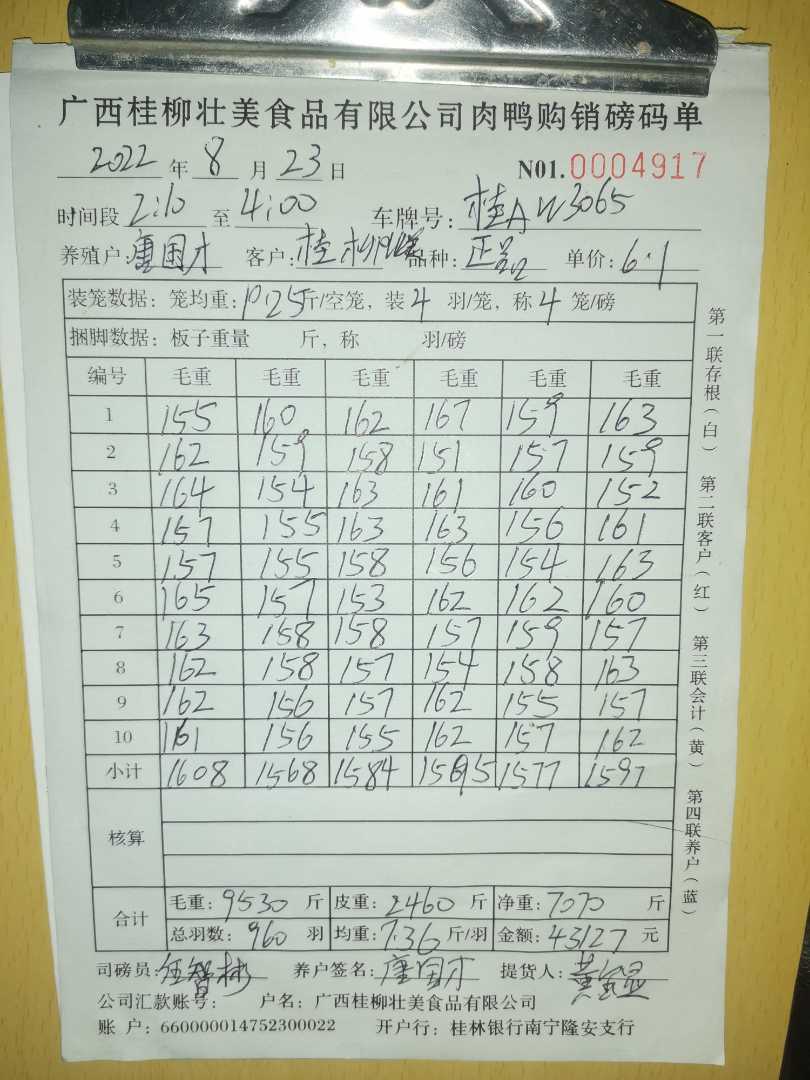 广西桂柳壮美食品有限公司肉鸭购销磅码单
2022 年 8 月 23 日 N01.0004917
时间段 2:10 至 4:00 车牌号: 桂A W3065
养殖户: 唐国才 客户: 桂柳 品种: 正品 单价: 6.1
装笼数据: 笼均重: 10.25斤/空笼, 装 4 羽/笼, 称 4 笼/磅
捆脚数据: 板子重量 斤, 称 羽/磅
编号 毛重 毛重 毛重 毛重 毛重 毛重
1 155 160 162 167 159 163
2 162 159 158 151 157 159
3 164 154 163 161 160 152
4 157 155 163 163 156 161
5 157 155 158 156 154 163
6 165 157 153 162 162 160
7 163 158 158 157 159 157
8 162 158 157 154 158 163
9 162 156 157 162 155 157
10 161 156 155 162 157 162
小计 1608 1568 1584 1595 1577 1597
核算
合计 毛重: 9530 斤 皮重: 2460 斤 净重: 7070 斤
总羽数: 960 羽 均重: 7.36 斤/羽 金额: 43127 元
司磅员: 任智彬 养户签名: 唐国才 提货人: 黄
公司汇款账号: 户名: 广西桂柳壮美食品有限公司
账 户: 660000014752300022 开户行: 桂林银行南宁隆安支行
第一联存根(白) 第二联客户(红) 第三联会计(黄) 第四联养户(蓝)